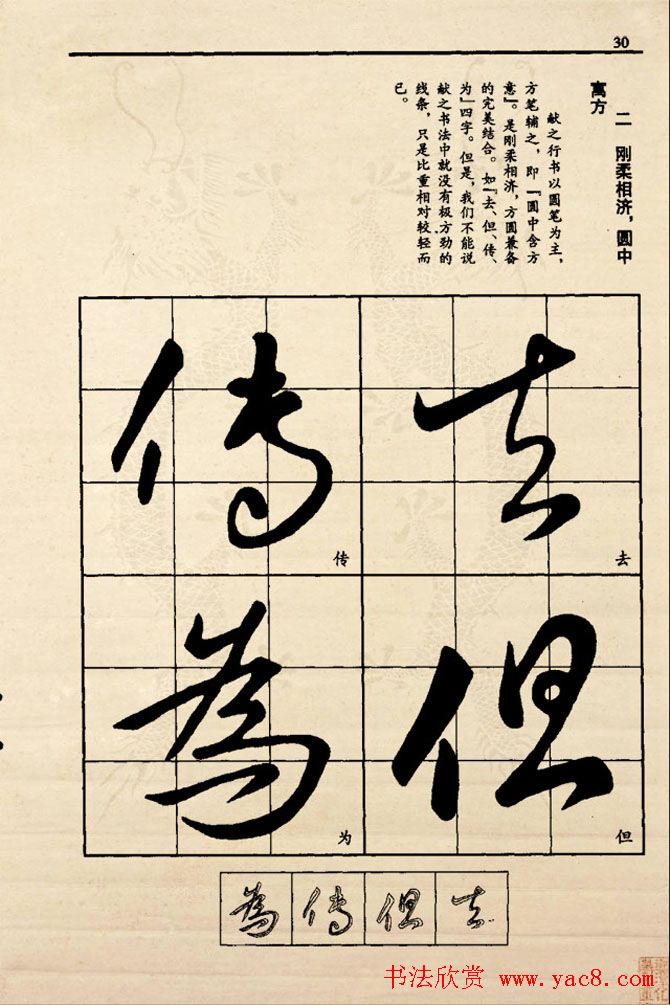 30
二 刚柔相济，圆中
寓方
献之行书以圆笔为主，
方笔辅之，即『圆中含方
意』。是刚柔相济，方圆兼备
的完美结合。如『去、但、传、
为』四字。但是，我们不能说
献之书法中就没有极方劲的
线条，只是比重相对较轻而
已。
去
去
但
但
傳
传
為
为
去但傳為
书法欣赏 www.yac8.com